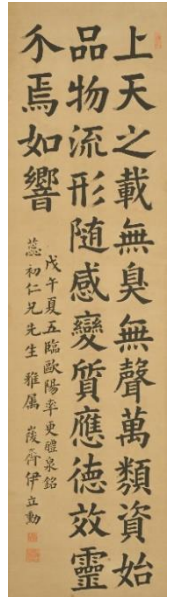 上天之載無臭無聲萬類資始
品物流形隨感變質應德效靈
介焉如響
戊午夏五臨歐陽率更醴泉銘
蕊初仁兄先生 雅属 峻齋伊立勳